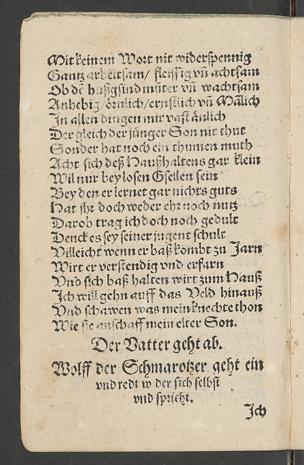 Mit keinem Wort nit widerspennig
Gantz arbeitsam / fleissig vñ achtsam
Ob dẽ haußgsind můter vñ wachtsam
Anhebig / örnlich / ernstlich vñ Mãlich
In allen dingen mir vast ånlich
Der gleich der jünger Son nit thut
Sonder hat noch ein thumen muth
Acht sich deß Haußhaltens gar klein
Wil nur bey losen Gsellen sein
Bey den er lernet gar nichts guts
Hat jhr doch weder ehr noch nutz
Darob trag ich doch noch gedult
Denck es sey seiner jugent schult
Villeicht wenn er baß kombt zu Jarn
Wirt er verstendig vnd erfarn
Vnd sich baß halten wirt zum Hauß
Ich will gehn auff das Veld hinauß
Vnd schawen was mein knechte thon
Wie sie anschaff mein elter Son.
Der Vatter geht ab.
Wolff der Schmarotzer geht ein
vnd redt w der sich selbst
vnd spricht.
Ich